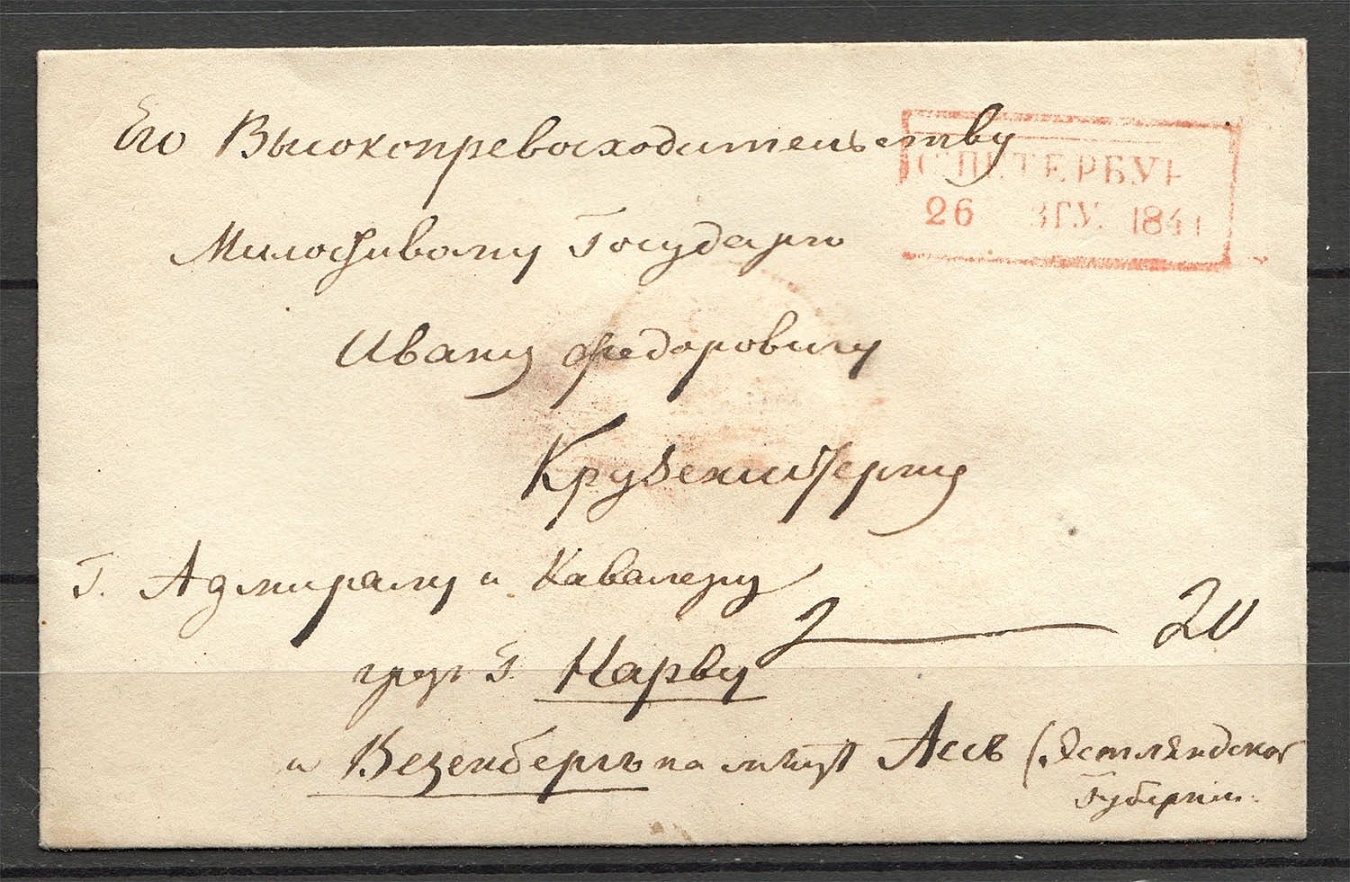 Его Высокопревосходительству
С.ПЕТЕРБУР
26 ВГУ. 1841
Милостивому Государю
Ивану Федоровичу
Крузенштерну
Г. Адмиралу и Кавалеру
20
чрез г. Нарву
и Везенбергъ на мызу Ассъ (Эстляндской
Губерніи.